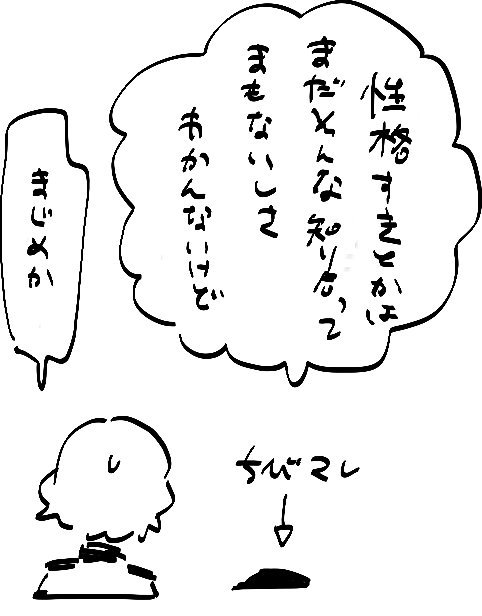 性格すきとかは
まだそんな知り合って
まもないしさ
わかんないけど
まじめか
ちびマレ